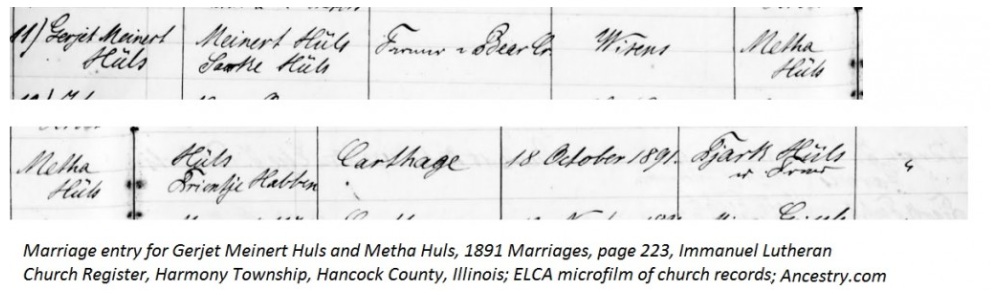 11) Gerjet Meinert Hüls
Meinert Hüls
Hüls
Farmer Bear Cr.
Metha
Hüls
Metha
Hüls
Hüls
Trientje Habben
Carthage
18 October 1891.
Tjark Hüls
"
Marriage entry for Gerjet Meinert Huls and Metha Huls, 1891 Marriages, page 223, Immanuel Lutheran
Church Register, Harmony Township, Hancock County, Illinois; ELCA microfilm of church records; Ancestry.com